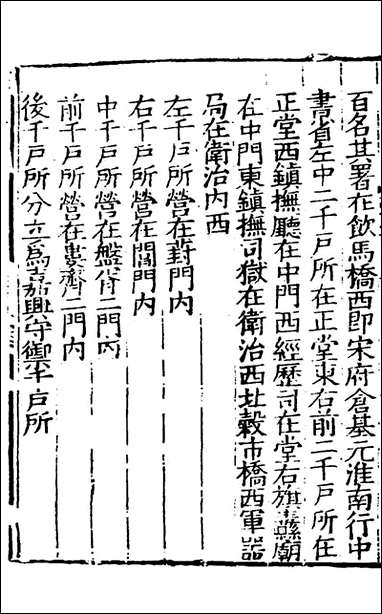 百名其署在飲馬橋西即宋府倉基元淮南行中
書省左中二千戸所在正堂東右前二千戸所在
正堂西鎮撫廳在中門西經歷司在堂右旗纛廟
在中門東鎮撫司獄在衛治西北穀市橋西軍器
局在衛治内西
左千戸所營在葑門内
右千戸所營在閶門内
中千戸所營在盤胥二門内
前千戸所營在婁齊二門内
後千戸所分立爲嘉興守御千戸所